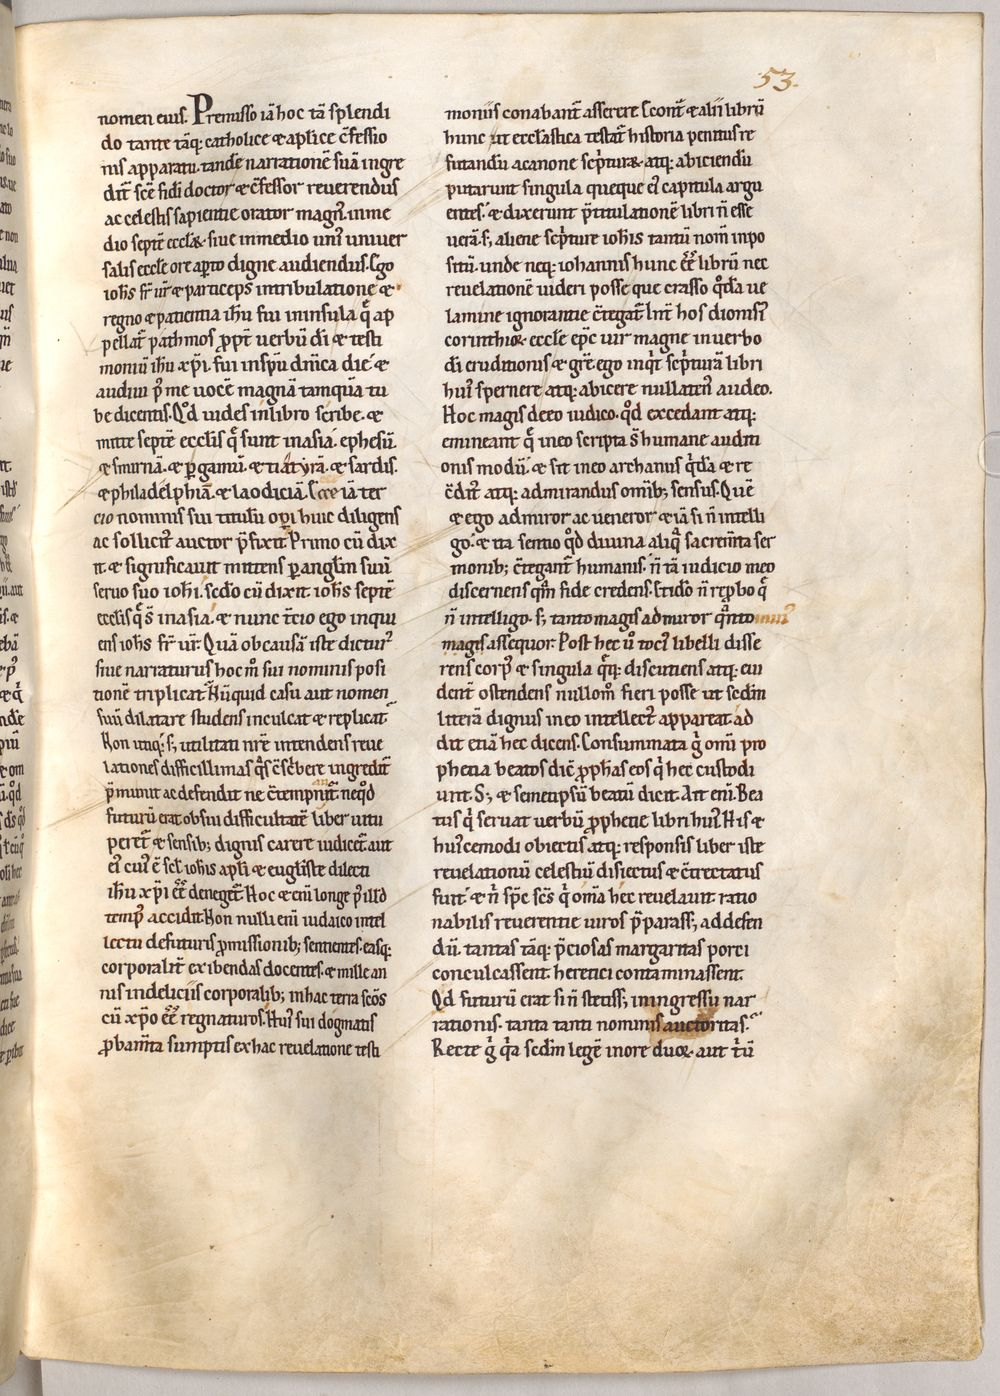 53.
nomen eius. Premisso iā hoc tā splendi
do tante tāq; catholice & aplice c̄fessio
nis apparatu. tandē narrationē suā ingre
dit̄ scē fidī doctor & c̄fessor reuerendus
ac celestis sapientie orator magn᾽. in me
dio septē eccl̄aꝝ. siue in medio uni᾽ uniuer
salis eccl̄e ore aꝑto digne audiendus. Ego
ioh̄s fr̄ ur̄ & particeps in tribulatione &
regno & patientia ih̄u fui in insula q̄ ap
pellat̄ pathmos ꝓpt̄ uerbū dī & testi
moniū ih̄u xp̄i. fui in sp̄u dn̄ica die. &
audiui p᾽ me uocē magnā tamquā tu
be dicentis. Qᵒd uides in libro scribe. &
mitte septē eccl̄iis q̄ sunt in asia. ephesū.
& smirnā. & ꝑgamū. & tiatyrā. & sardis.
& philadelphiā. & laodiciā. Ecce iā ter
cio nominis sui titulū op̄i huic diligens
ac sollicit᾽ auctor p̄fixit. Primo cū dix
it. & significauit mittens ꝑ angl̄m suū
seruo suo ioh̄i. sc̄do cū dixit ioh̄s septē
eccl̄iis q̄ s̄ in asia. & nunc t̄cio ego inqui
ens ioh̄s fr̄ ur̄. Quā ob causā iste dictur᾽
siue narraturus hoc m̊ sui nominis posi
tionē triplicat. Nūquid casu aut nomen
suū dilatare studens inculcat & replicat.
Non utiq;. s; utilitati nr̄e intendens reue
lationes difficillimas qᵃs c̄scⁱbere ingredit̄
p̄munit ac defendit ne c̄tempnit̄. neqᵒd
futurū erat ob sui difficultatē liber uitu
peret̄ & sensib; dignis carere iudicet̄ aut
ei᾽ cui᾽ ē scl̄. ioh̄is apl̄i & euḡliste dilecti
ih̄u xp̄i eē᾽ deneget̄. Hoc & enī longe p᾽ illᵈ
temp᾽ accidit. Non nulli enī iudaico intel
lectu de futuris ꝓmissionib; sentientes. easq;
corporalit̄ exibendas docentes. & mille an
nis in deliciis corporalib; in hac terra sc̄os
cū xp̄o eē᾽ regnaturos. Hui᾽ sui dogmatis
ꝓbam̄ta sumptis ex hac reuelatione testi
moniis conabant̄ asserere. Econt᷑ & alii librū
hunc ut eccl̄astica testat̄ historia penitus re
futandū a canone scⁱpturaꝝ. atq; abiciendū
putarunt singula queque ei᾽ capitula argu
entes. & dixerunt p̄titulationē libri n̄ esse
uerā. s; aliene scⁱpture ioh̄is tantū nom̄ inpo
sitū. unde neq; iohannis hunc eē᾽ librū nec
reuelationē uideri posse que crasso qᵒdā ue
lamine ignorantie c̄tegat̄. Int᷑ hos dionisi᾽
corinthioꝝ. eccl̄e ep̄c uir magne in uerbo
dī eruditionis & gr̄e. ego inqⁱt scⁱpturā libri
hui᾽ spernere atq; abicere nullaten᾽ audeo.
Hoc magis de eo iudico. qᵒd excedant atq;
emineant q̄ in eo scripta s̄ humane auditi
onis modū. & sit in eo archanus qⁱdā & re
c̄dit᾽ atq; admirandus om̄ib; sensus. Quē
& ego admiror ac ueneror & iā si n̄ intelli
go. & ita sentio qᵒd diuina aliqᵃ sacrem̄ta ser
monib; c̄tegant̄ humanis. n̄ tā iudicio meo
discernens qᵃm fide credens. Et idō n̄ reꝓbo q̄
n̄ intelligo. s; tanto magis admiror qᵃnto min᾽
magis assequor. Post hec ů toci᾽ libelli disse
rens corp᾽ & singula qᵉq; discutiens atq; eui
dent᷑ ostendens nullom̊ fieri posse ut scd̄m
literā dignus in eo intellect᾽ appareat. ad
dit etiā hec dicens. Consummata gⁱ om̄i pro
phetia beatos dic̄ ꝓph̄as eos qⁱ hec custodi
unt. S; & semetipsū beatū dicit. Ait enī. Bea
tus qⁱ seruat uerbū ꝓphetie libri hui᾽. His &
hui᾽cemodi obiectis atq; responsis liber iste
reuelationū celestiū disiectus & c̄trectatus
fuit. & n̄ sp̄c sc̄s qⁱ om̄a hec reuelauit ratio
nabilis reuerentie uiros p̄parass; ad defen
dū. tantas tāq; p̄ciosas margaritas porci
conculcassent. heretici contaminassent.
Qᵒd futurū erat si n̄ stetiss; in ingressu nar
rationis. tanta tanti nominis auctoritas.
Recte gⁱ qⁱa scd̄m legē in ore duoꝝ. aut tⁱū